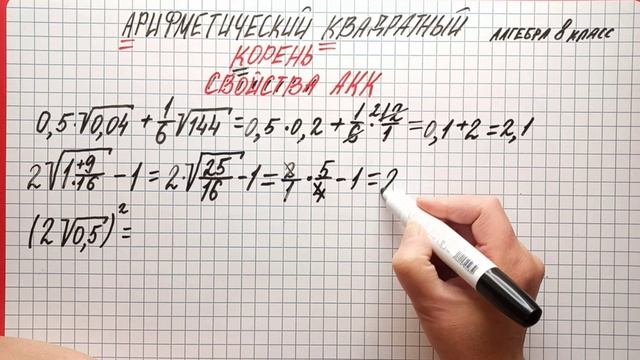 АРИФМЕТИЧЕСКИЙ КВАДРАТНЫЙ АЛГЕБРА 8 КЛАСС
КОРЕНЬ
СВОЙСТВА АКК
0,5·√0,04 + 1/6 √144 = 0,5·0,2 + 1/6 · 2 12/1 = 0,1+2=2,1
2√1 +9/·16 − 1 = 2·√25/16 − 1 = 2/1 · 5/4 − 1 = 2
(2√0,5)² =